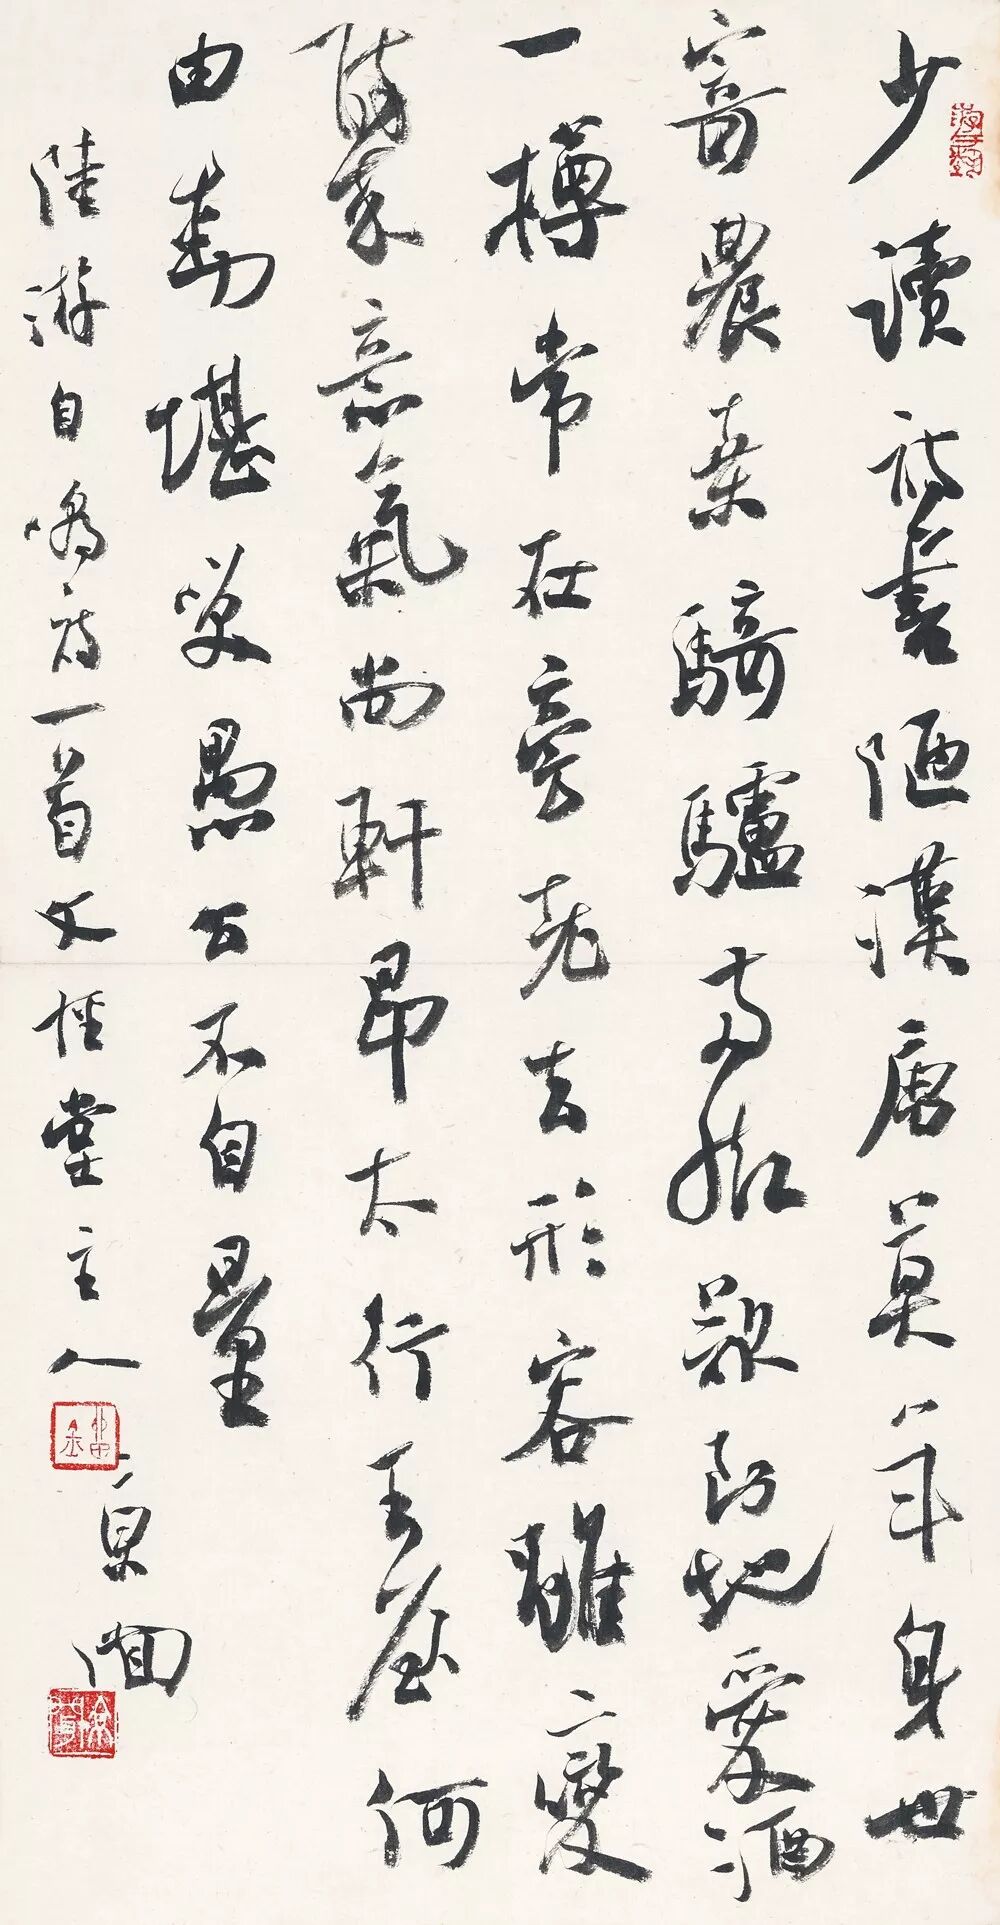 少讀詩書陋漢唐莫年身世
寄農桑騎驢兩腳欲到地愛酒
一樽常在旁老去形容雖變
來意氣尚軒昂太行王屋何
由動堪笑愚公不自量
陸游自嘲詩一首文堂主人